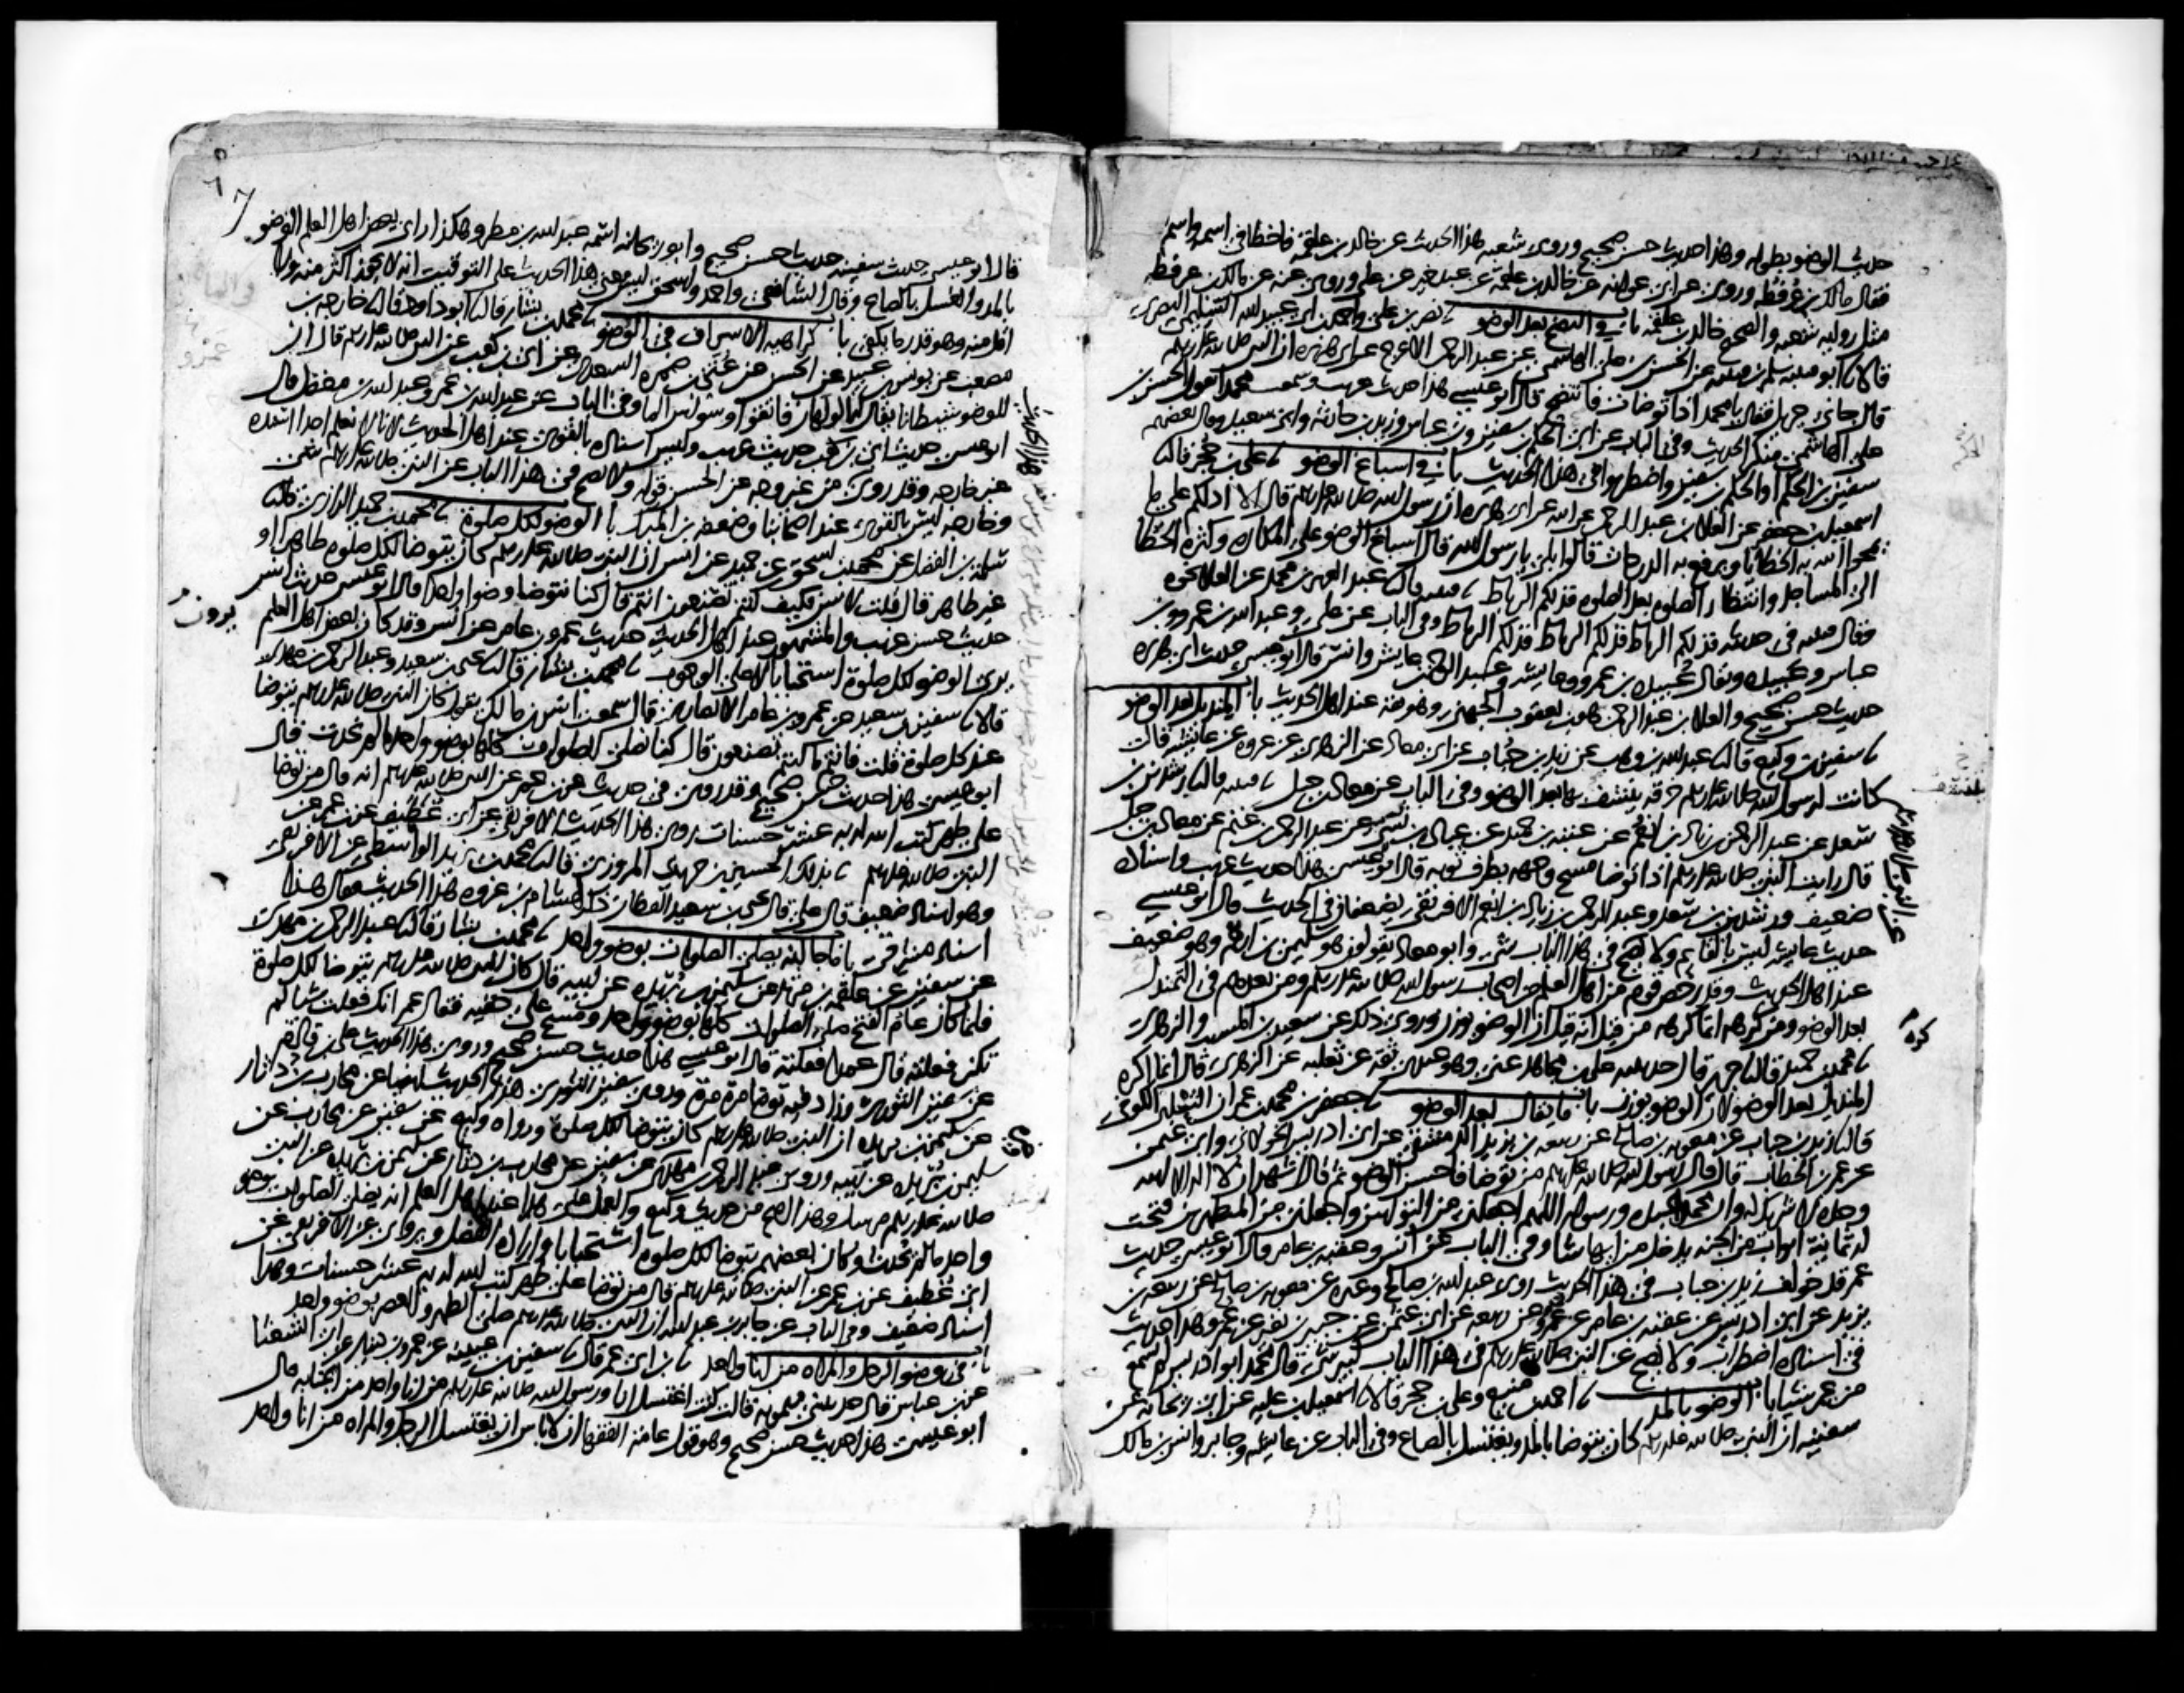 حديث الوضو بطوله وهذا حديث حسن صحيح وروى شعبه هذا الحديث عن خالد بن علقمة فاخطا في اسمه واسم
فقال مالك بن عرفطه وروى عن ابي عوانه عن خالد بن علقمة عن عبد خير عن علي وروى عنه عن مالك بن عرفطه
مثل روايه شعبه والصحيح خالد بن علقمه باب في النضح بعد الوضو نا نصر بن علي واحمد بن ابي عبيد الله السليمي البصري
قالا نا ابو قتيبه سلم بن قتيبه عن الحسن بن علي الهاشمي عن عبد الرحمن الاعرج عن ابي هريره ان النبي صلى الله عليه وسلم
قال جاني جبريل فقال يا محمد اذا توضات فانتضح قال ابو عيسى هذا حديث غريب وسمعت محمدا يقول الحسن بن
علي الهاشمي منكر الحديث وفي الباب عن ابي الحكم بن سفين وبن عباس وزيد بن حارثه وابي سعيد وقال بعضهم
سفين بن الحكم او الحكم بن سفين واضطربوا في هذا الحديث باب في اسباغ الوضو نا علي بن حجر قال نا
اسمعيل بن جعفر عن العلا بن عبد الرحمن عن ابيه عن ابي هريره ان رسول الله صلى الله عليه وسلم قال الا ادلكم على ما
يمحوا الله به الخطايا ويرفع به الدرجات قالوا بلى يا رسول الله قال اسباغ الوضو على المكاره وكثرة الخطا
الى المساجد وانتظار الصلوه بعد الصلوه فذلكم الرباط نا قتيبه قال نا عبد العزيز بن محمد عن العلا نحوه
وقال قتيبه في حديثه فذلكم الرباط فذلكم الرباط فذلكم الرباط وفي الباب عن علي وعبد الله بن عمرو وبن
عباس وعبيده ويقال عبيده بن عمرو وعايشه وعبد الرحمن بن عايش وانس قال ابو عيسى حديث ابي هريره
حديث حسن صحيح والعلا بن عبد الرحمن هو بن يعقوب الجهني وهو ثقة عند اهل الحديث باب المنديل بعد الوضو
نا سفين بن وكيع قال نا عبد الله بن وهب عن زيد بن حباب عن ابي معاذ عن الزهري عن عروه عن عايشه قالت
كانت لرسول الله صلى الله عليه وسلم خرقه ينشف بها بعد الوضو وفي الباب عن معاذ بن جبل نا قتيبه قال نا رشدين بن
سعد عن عبد الرحمن بن زياد بن انعم عن عتبه بن حميد عن عبادة بن نسي عن عبد الرحمن بن غنم عن معاذ بن جبل
قال رايت النبي صلى الله عليه وسلم اذا توضا مسح وجهه بطرف ثوبه قال ابو عيسى هذا حديث غريب واسناده
ضعيف ورشدين بن سعد وعبد الرحمن بن زياد بن انعم الافريقي يضعفان في الحديث قال ابو عيسى
حديث عايشه ليس بالقايم ولا يصح في هذا الباب شي وابو معاذ يقولون هو سليمن بن ارقم وهو ضعيف
عند اهل الحديث وقد رخص قوم من اهل العلم من اصحاب رسول الله صلى الله عليه وسلم ومن بعدهم في التمندل
بعد الوضو ومن كرهه انما كرهه من قبل انه قيل ان الوضو يوزن وروى ذلك عن سعيد بن المسيب والزهري
نا محمد بن حميد قال نا جرير قال حدثنيه علي بن مجاهد عني وهو عندي ثقة عن ثعلبه عن الزهري قال انما اكره
المنديل بعد الوضو لان الوضو يوزن باب ما يقال بعد الوضو نا جعفر بن محمد بن عمران الثعلبي الكوفي
قال نا زيد بن حباب عن معويه بن صالح عن ربيعه بن يزيد الدمشقي عن ابي ادريس الخولاني وابي عثمن
عن عمر بن الخطاب قال قال رسول الله صلى الله عليه وسلم من توضا فاحسن الوضو ثم قال اشهد ان لا اله الا الله
وحده لا شريك له وان محمدا عبده ورسوله اللهم اجعلني من التوابين واجعلني من المتطهرين فتحت
له ثمانية ابواب من الجنه يدخل من ايها شا وفي الباب عن انس وعقبه بن عامر قال ابو عيسى حديث
عمر قد خولف زيد بن حباب في هذا الحديث روى عبد الله بن صالح وغيره عن معويه بن صالح عن ربيعه بن
يزيد عن ابي ادريس عن عقبه بن عامر عن عمر وعن ربيعه عن ابي عثمن عن جبير بن نفير عن عمر وهذا حديث
في اسناده اضطراب ولا يصح عن النبي صلى الله عليه وسلم في هذا الباب كبير شي قال محمد ابو ادريس لم يسمع
من عمر شيا باب الوضو بالمد نا احمد بن منيع وعلي بن حجر قالا نا اسمعيل بن عليه عن ابي ريحانه عن
سفينه ان النبي صلى الله عليه وسلم كان يتوضا بالمد ويغتسل بالصاع وفي الباب عن عايشه وجابر وانس بن مالك
قال ابو عيسى حديث سفينه حديث حسن صحيح وابو ريحانه اسمه عبد الله بن مطر وهكذا راى بعض اهل العلم الوضو
بالمد والغسل بالصاع وقال الشافعي واحمد واسحق ليس معنى هذا الحديث على التوقيت انه لا يجوز اكثر منه ولا
اقل منه وهو قدر ما يكفي باب كراهيه الاسراف في الوضو نا محمد بن بشار قال نا ابو داود قال نا خارجه بن
مصعب عن يونس بن عبيد عن الحسن عن عتي بن ضمره السعدي عن ابي بن كعب عن النبي صلى الله عليه وسلم قال ان
للوضو شيطانا يقال له الولهان فاتقوا وسواس الما وفي الباب عن عبد الله بن عمرو وعبد الله بن مغفل قال
ابو عيسى حديث ابي بن كعب حديث غريب وليس اسناده بالقوي عند اهل الحديث لانا لا نعلم احدا اسنده
غير خارجه وقد روى من غير وجه عن الحسن قوله ولا يصح في هذا الباب عن النبي صلى الله عليه وسلم شي
وخارجه ليس بالقوي عند اصحابنا وضعفه بن المبرك باب الوضو لكل صلوة نا محمد بن حميد الرازي قال نا
سلمة بن الفضل عن محمد بن اسحق عن حميد عن انس ان النبي صلى الله عليه وسلم كان يتوضا لكل صلوه طاهرا او
غير طاهر قال قلت لانس فكيف كنتم تصنعون انتم قال كنا نتوضا وضوا واحدا قال ابو عيسى حديث انس
حديث حسن غريب والمشهور عند اهل الحديث حديث عمرو بن عامر عن انس وقد كان بعض اهل العلم
يرى الوضو لكل صلوة استحبابا لا على الوجوب نا محمد بن بشار قال نا يحيى بن سعيد وعبد الرحمن بن مهدي
قالا نا سفين بن سعيد عن عمرو بن عامر الانصاري قال سمعت انس بن مالك يقول كان النبي صلى الله عليه وسلم يتوضا
عند كل صلوة قلت فانتم ما كنتم تصنعون قال كنا نصلي الصلوات كلها بوضو واحد ما لم نحدث قال
ابو عيسى هذا حديث حسن صحيح وقد روى في حديث عن بن عمر عن النبي صلى الله عليه وسلم انه قال من توضا
على طهر كتب الله له به عشر حسنات روى هذا الحديث الافريقي عن ابي غطيف عن بن عمر عن
النبي صلى الله عليه وسلم نا بذلك الحسين بن حريث المروزي قال نا محمد بن يزيد الواسطي عن الافريقي
وهو اسناد ضعيف قال علي قال يحيى بن سعيد القطان ذكر لهشام بن عروه هذا الحديث فقال هذا
اسناد مشرقي باب ما جا انه يصلي الصلوات بوضو واحد نا محمد بن بشار قال نا عبد الرحمن بن مهدي
عن سفين عن علقمه بن مرثد عن سليمن بن بريده عن ابيه قال كان النبي صلى الله عليه وسلم يتوضا لكل صلوة
فلما كان عام الفتح صلى الصلوات كلها بوضو واحد ومسح على خفيه فقال عمر انك فعلت شيا لم
تكن فعلته قال عمدا فعلته قال ابو عيسى هذا حديث حسن صحيح وروى هذا الحديث علي بن قادم
عن سفين الثوري وزاد فيه توضا مرة مرة وروى سفين الثوري هذا الحديث ايضا عن محارب بن دثار
عن سليمن بن بريده ان النبي صلى الله عليه وسلم كان يتوضا لكل صلوة ورواه وكيع عن سفين عن محارب عن
سليمن بن بريده عن ابيه وروى عبد الرحمن بن مهدي عن سفين عن محارب بن دثار عن سليمن بن بريده عن النبي
صلى الله عليه وسلم مرسلا وهذا اصح من حديث وكيع والعمل على هذا عند اهل العلم انه يصلي الصلوات بوضو
واحد ما لم يحدث وكان بعضهم يتوضا لكل صلوه استحبابا وارادة الفضل ويروى عن الافريقي عن
ابي غطيف عن بن عمر عن النبي صلى الله عليه وسلم قال من توضا على طهر كتب الله له به عشر حسنات وهذا
اسناد ضعيف وفي الباب عن جابر بن عبد الله ان النبي صلى الله عليه وسلم صلى الظهر والعصر بوضو واحد
باب في وضو الرجل والمراه من انا واحد نا بن ابي عمر قال نا سفين بن عيينه عن عمرو بن دينار عن ابي الشعثا
عن بن عباس قال حدثتني ميمونه قالت كنت اغتسل انا ورسول الله صلى الله عليه وسلم من انا واحد من الجنابه قال
ابو عيسى هذا حديث حسن صحيح وهو قول عامة الفقها ان لا باس ان يغتسل الرجل والمراه من انا واحد